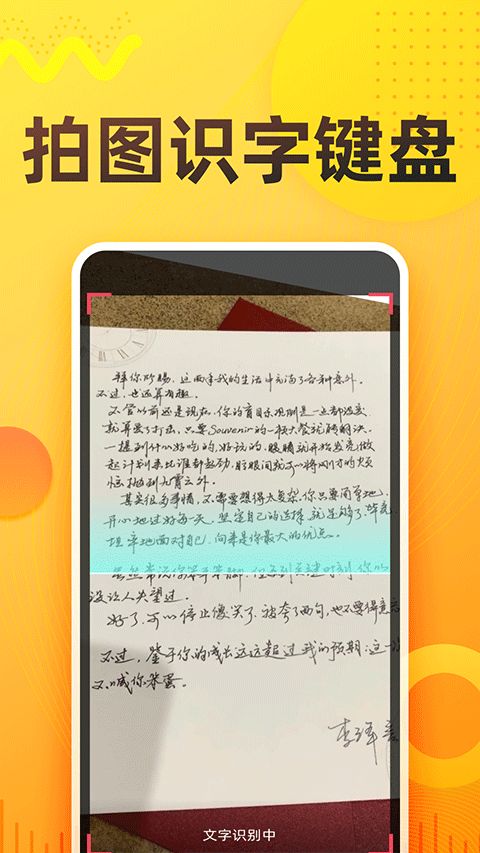 拍图识字键盘
拜你所赐，这两年我的生活中充满了各种意外。
不过，也还算有趣。
不管以前还是现在，你的盲目乐观倒是一点都没变
就算受了打击，只要Souvenir的一顿大餐就能解决。
一提到什么好吃的，好玩的，眼睛就开始发亮，做
起计划来比谁都起劲，眨眼间就可以将刚才的烦
恼抛到九霄云外。
其实很多事情，不需要想得太复杂，你只要简单地，
开心地过好每一天，坚定自己的选择，就足够了，毕竟，
坦率地面对自己，向来是你最大的优点。
虽然常说你笨手笨脚，但
没让人失望过。
好了，可以停止傻笑了，被夸了两句，也不要得意忘
不过，鉴于你的成长远远超过我的预期，这一次
不喊你笨蛋。
李泽言
文字识别中